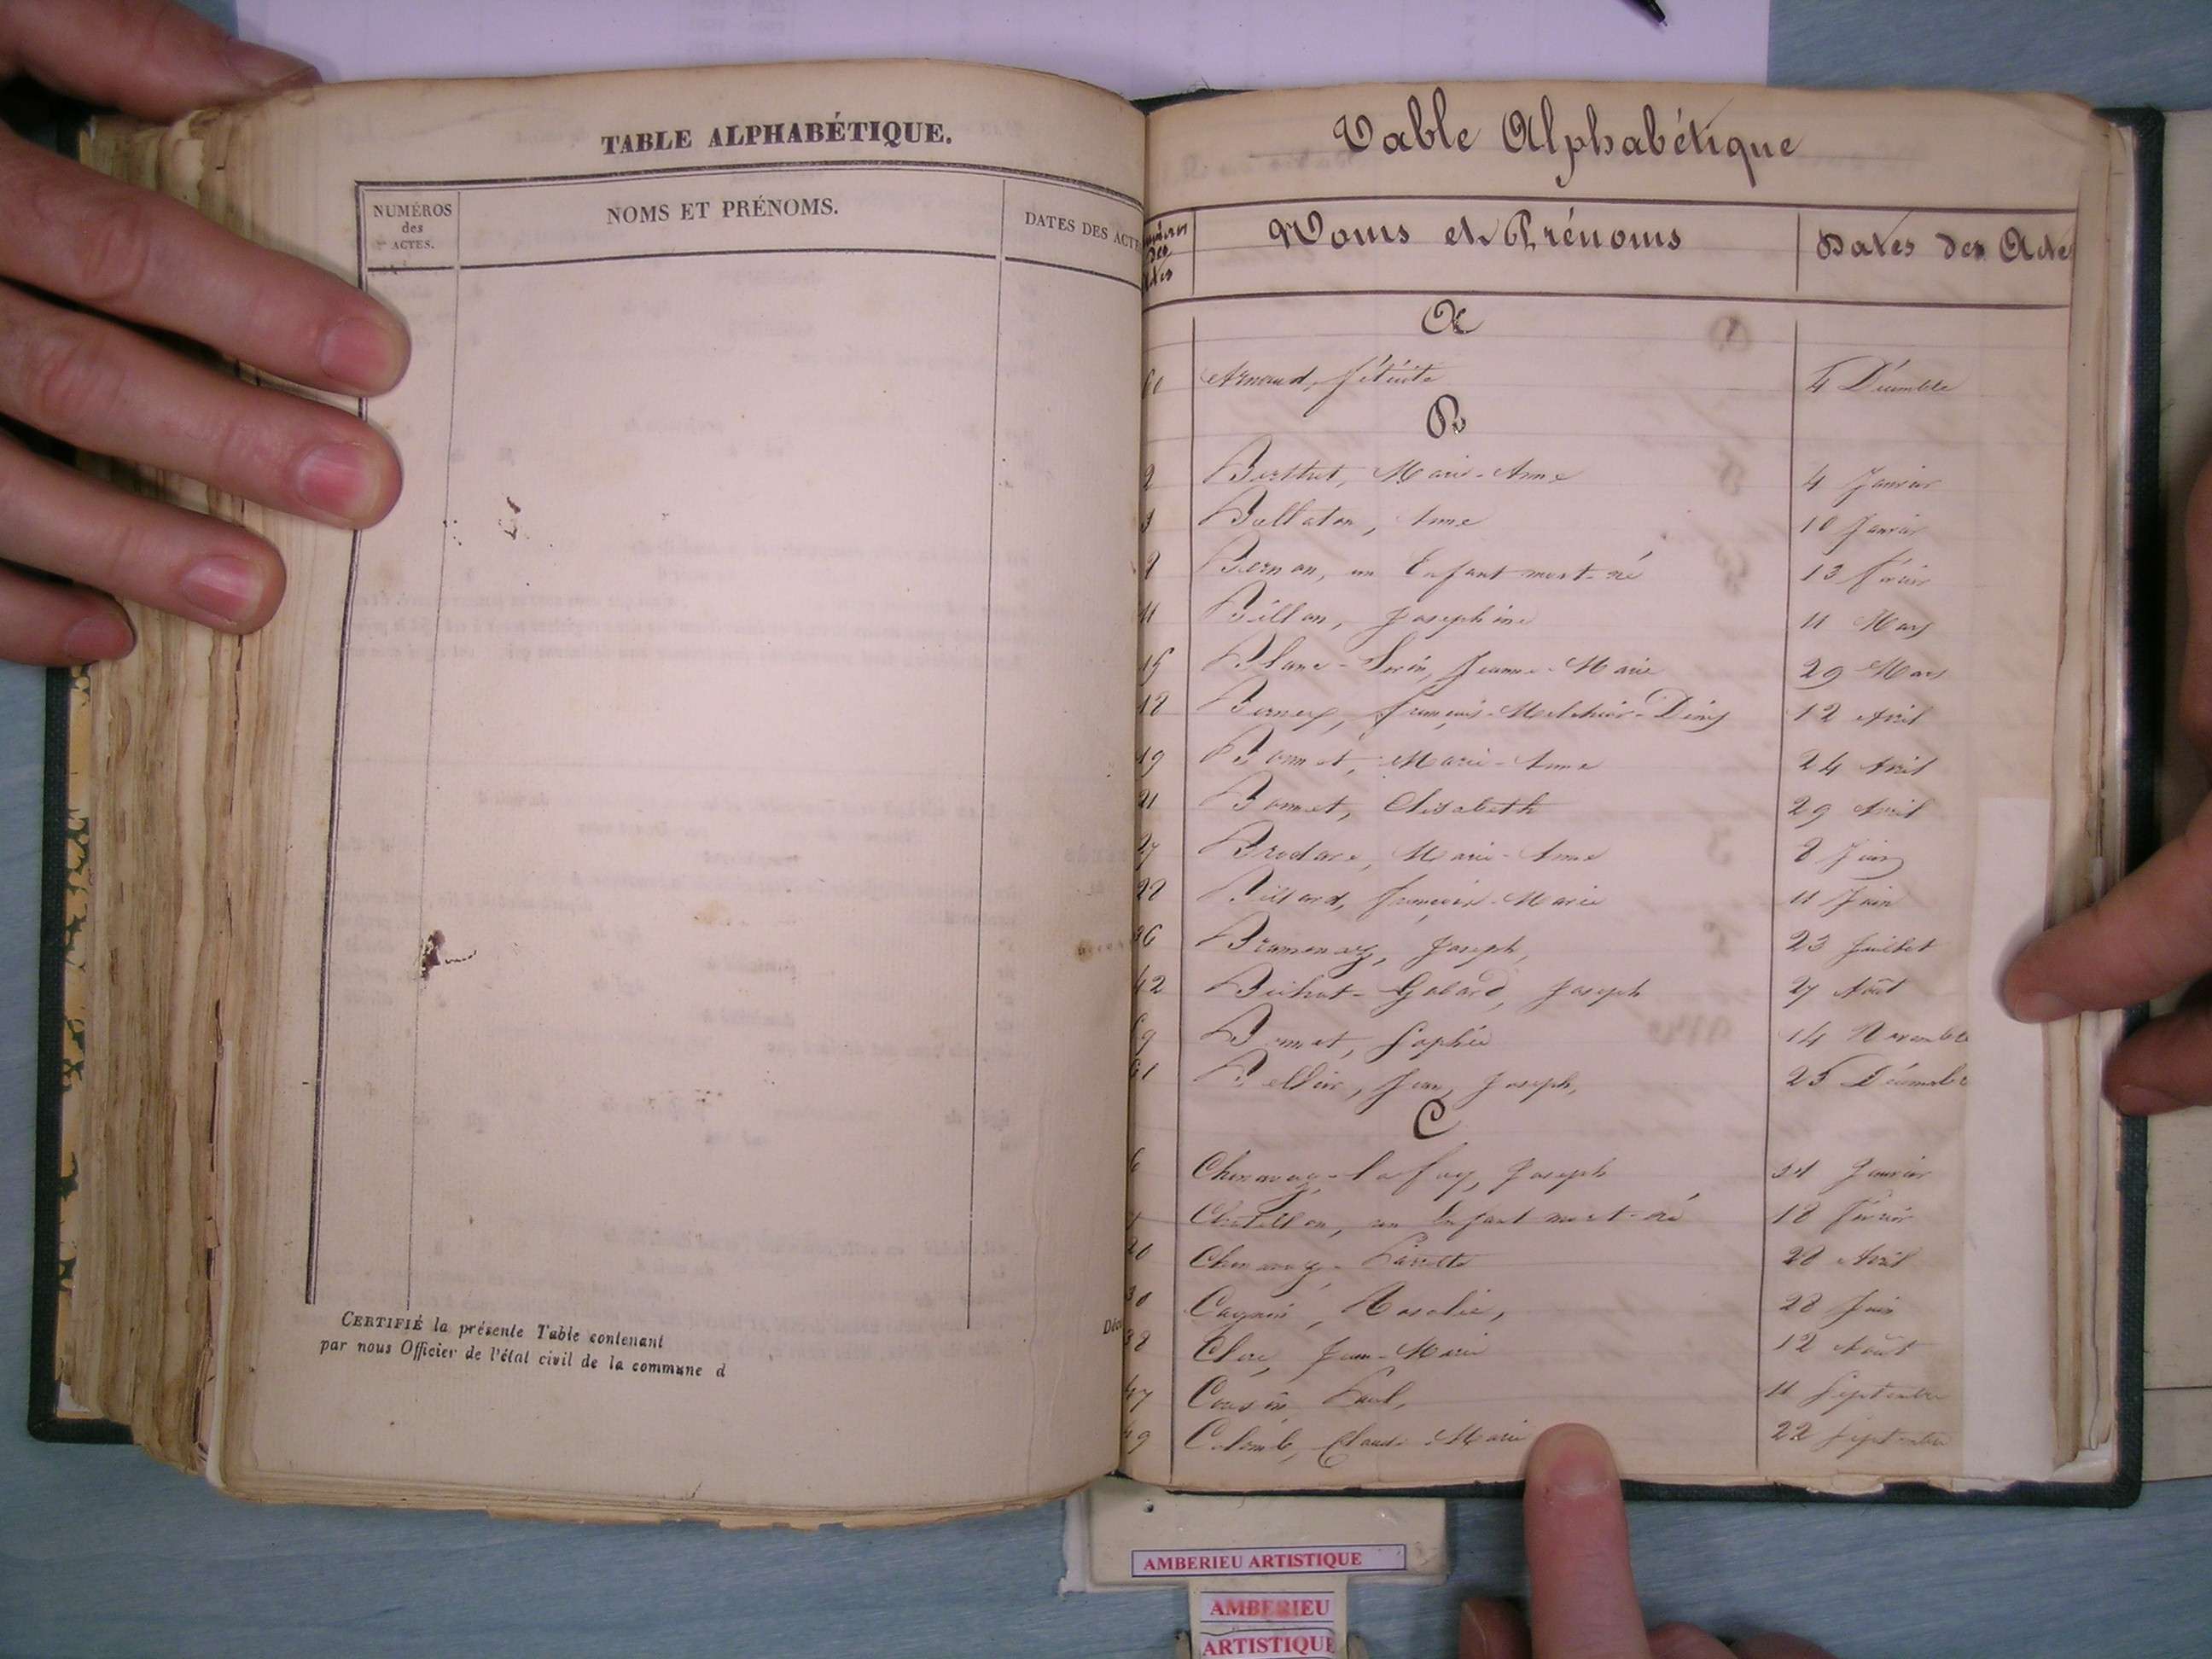 TABLE ALPHABÉTIQUE.
NUMÉROS
des
ACTES.
NOMS ET PRÉNOMS.
DATES DES ACT
CERTIFIÉ la présente Table contenant
par nous Officier de l'état civil de la commune d
Table Alphabétique
Noms et Prénoms
Dates des Actes
A
Arnaud, Félicité 4 Décembre
B
2 Berthet, Marie-Anne 4 Janvier
3 Ballaton, Anne 10 Janvier
un Enfant mort-né 13 Février
11 Billon, Joséphine 11 Mars
15 Jeanne-Marie 29 Mars
18 Bernex, François-Melchior-Denis 12 Avril
19 Bonnet, Marie-Anne 24 Avril
21 Bonnet, Elisabeth 29 Avril
27 Marie-Anne 8 Juin
28 Billard, François-Marie 11 Juin
36 Joseph, 23 Juillet
42 Joseph 27 Août
Bonnet, Sophie 14 Novembre
61 Jean, Joseph, 25 Décembre
C
6 Joseph 31 Janvier
Chatillon, un Enfant mort-né 18 Février
20 Chenavaz, Pierrette 28 Avril
30 Rosalie, 28 Juin
38 Clerc, Jean-Marie 12 Août
47 Cousin, Paul, 11 Septembre
49 Colomb, Claude Marie 22 Septembre
AMBERIEU ARTISTIQUE
AMBERIEU
ARTISTIQUE